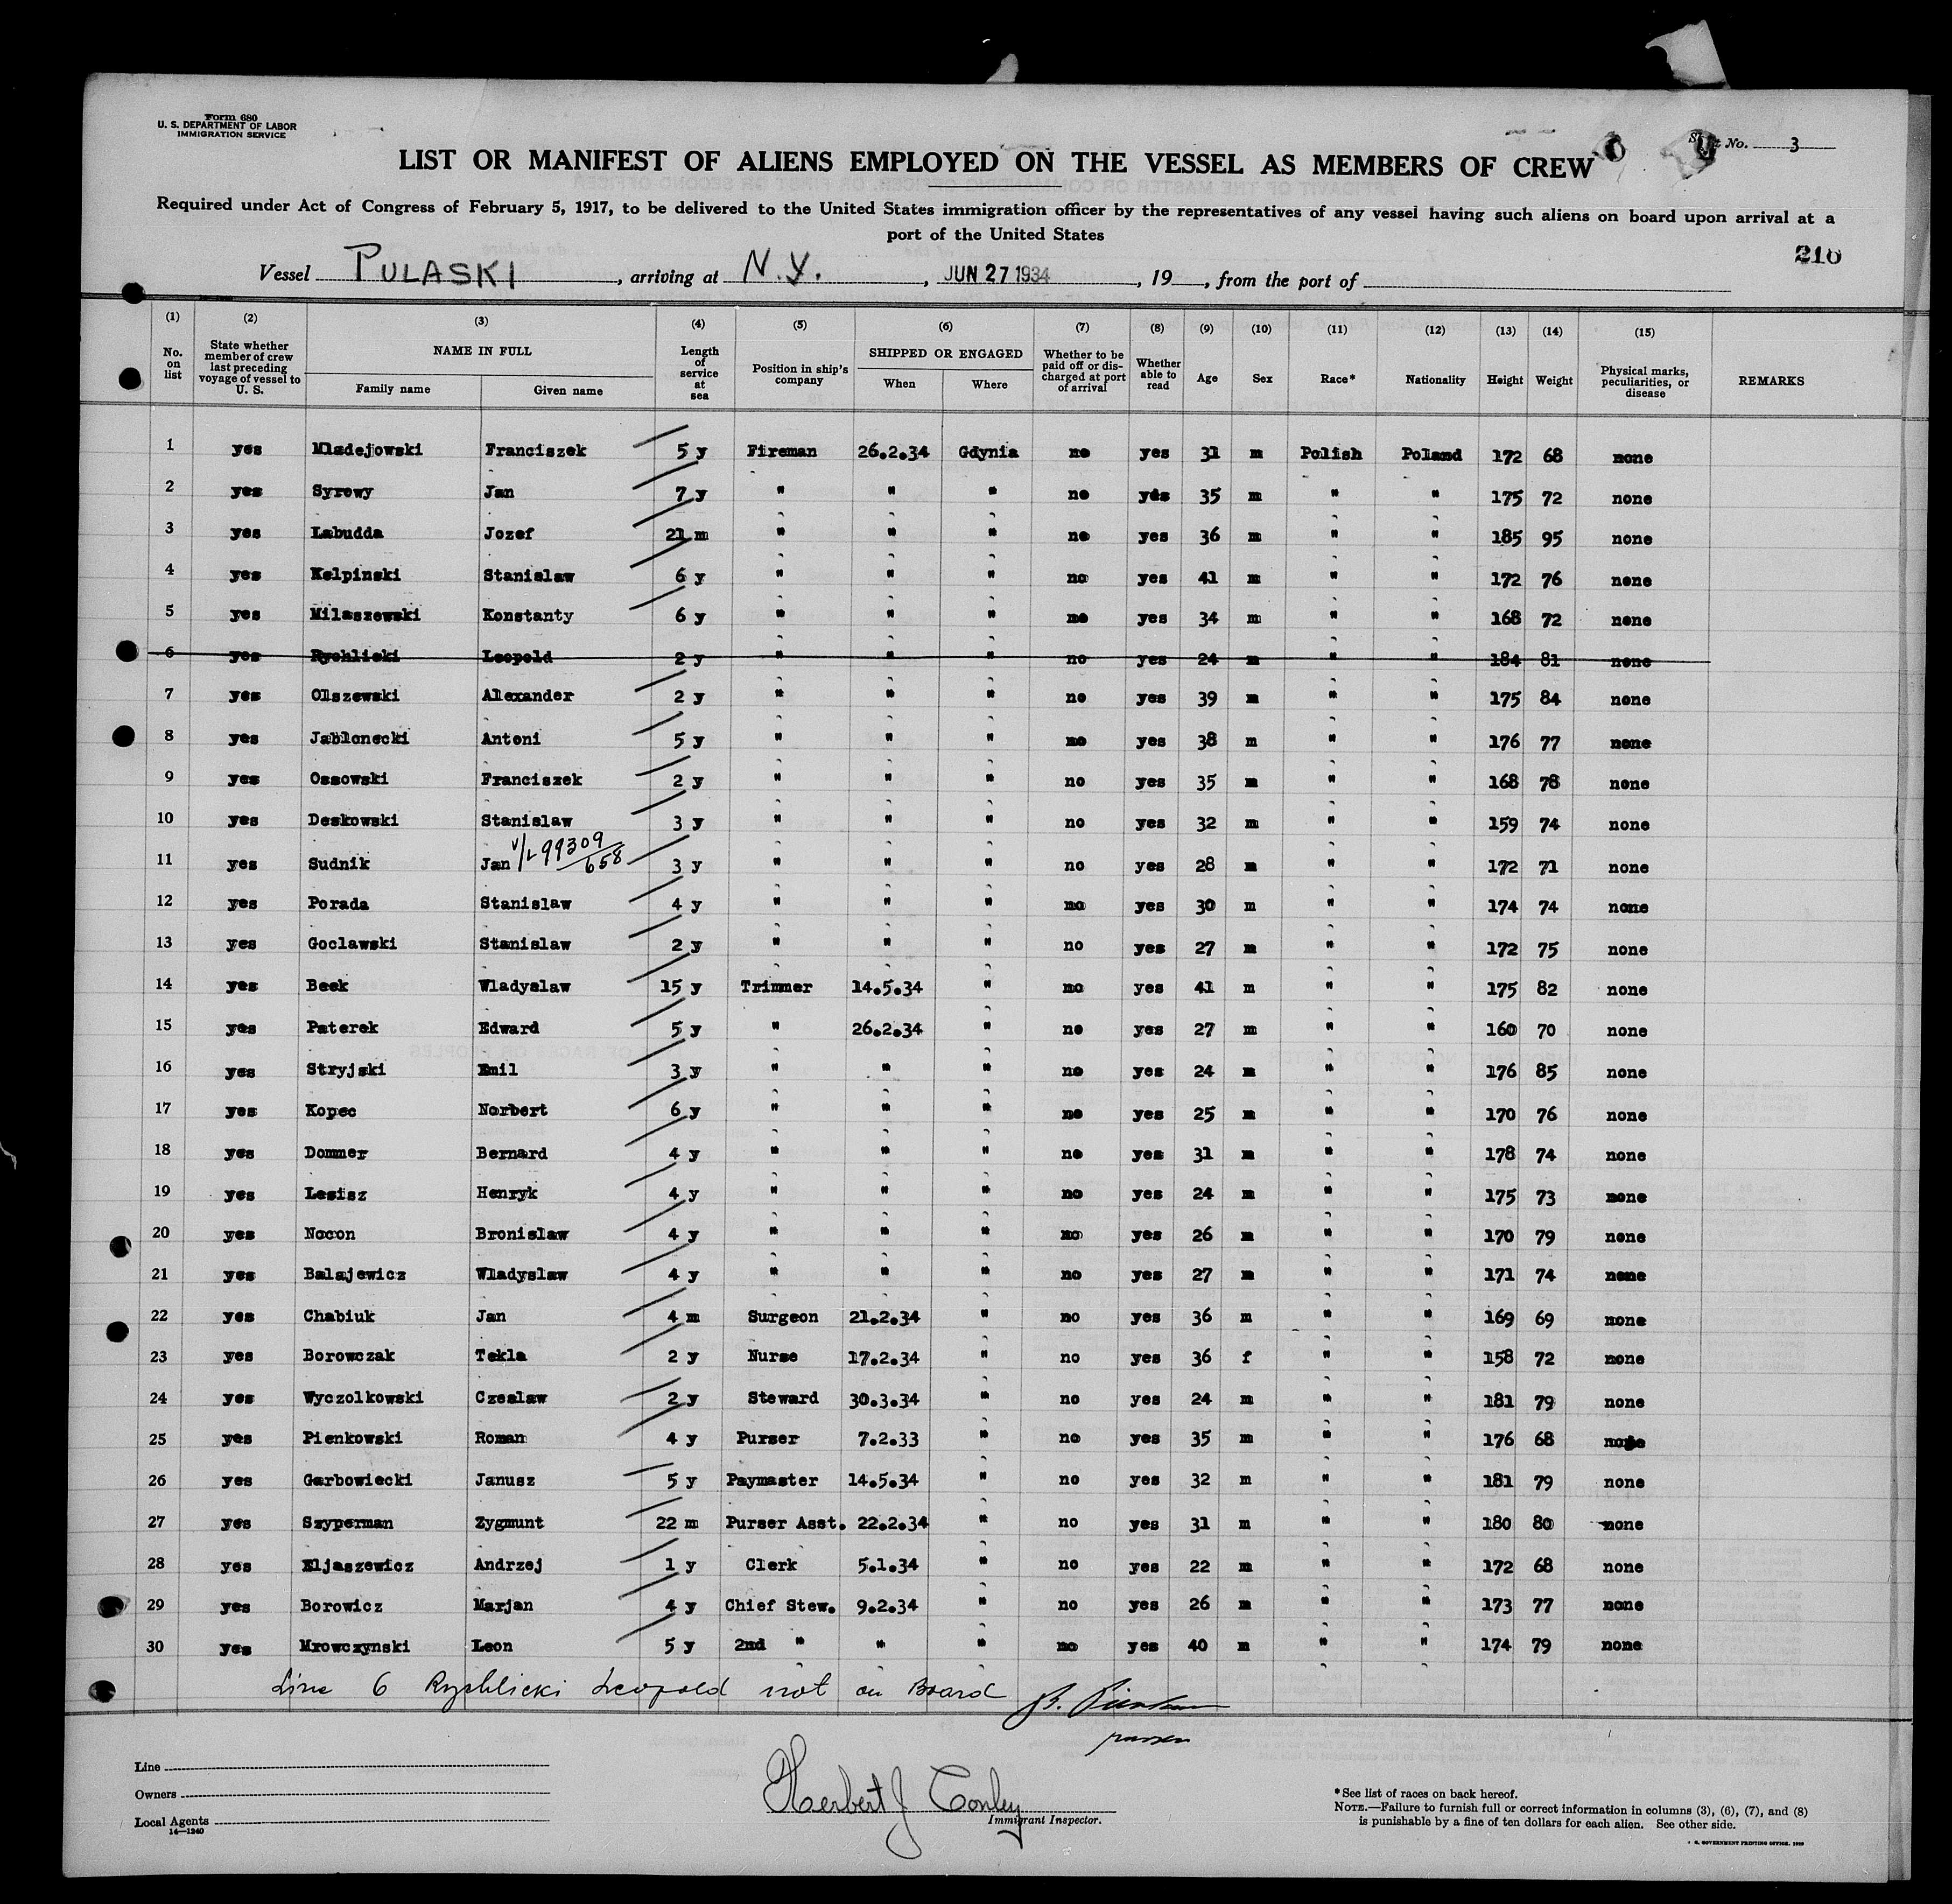 Form 680
U. S. DEPARTMENT OF LABOR
IMMIGRATION SERVICE
No. 3
LIST OR MANIFEST OF ALIENS EMPLOYED ON THE VESSEL AS MEMBERS OF CREW
Required under Act of Congress of February 5, 1917, to be delivered to the United States immigration officer by the representatives of any vessel having such aliens on board upon arrival at a
port of the United States
216
Vessel PULASKI, arriving at N.Y., JUN 27 1934, 19, from the port of
(1) (2) (3) (4) (5) (6) (7) (8) (9) (10) (11) (12) (13) (14) (15)
No. on list State whether member of crew last preceding voyage of vessel to U. S. NAME IN FULL Family name Given name Length of service at sea Position in ship's company SHIPPED OR ENGAGED When Where Whether to be paid off or discharged at port of arrival Whether able to read Age Sex Race* Nationality Height Weight Physical marks, peculiarities, or disease REMARKS
1 yes Mladejowski Franciszek 5 y Fireman 26.2.34 Gdynia no yes 31 m Polish Poland 172 68 none
2 yes Syrowy Jan 7 y " " " no yes 35 m " " 175 72 none
3 yes Labudda Jozef 21 m " " " no yes 36 m " " 185 95 none
4 yes Kelpinski Stanislaw 6 y " " " no yes 41 m " " 172 76 none
5 yes Milaszewski Konstanty 6 y " " " no yes 34 m " " 168 72 none
6 yes Rychlicki Leopold 2 y " " " no yes 24 m " " 184 81 none
7 yes Olszewski Alexander 2 y " " " no yes 39 m " " 175 84 none
8 yes Jablonecki Antoni 5 y " " " no yes 38 m " " 176 77 none
9 yes Ossowski Franciszek 2 y " " " no yes 35 m " " 168 78 none
10 yes Deskowski Stanislaw 3 y " " " no yes 32 m " " 159 74 none
11 yes Sudnik Jan V/L 99309/658 3 y " " " no yes 28 m " " 172 71 none
12 yes Porada Stanislaw 4 y " " " no yes 30 m " " 174 74 none
13 yes Goclawski Stanislaw 2 y " " " no yes 27 m " " 172 75 none
14 yes Beek Wladyslaw 15 y Trimmer 14.5.34 " no yes 41 m " " 175 82 none
15 yes Paterek Edward 5 y " 26.2.34 " no yes 27 m " " 160 70 none
16 yes Stryjski Emil 3 y " " " no yes 24 m " " 176 85 none
17 yes Kopec Norbert 6 y " " " no yes 25 m " " 170 76 none
18 yes Dommer Bernard 4 y " " " no yes 31 m " " 178 74 none
19 yes Lesisz Henryk 4 y " " " no yes 24 m " " 175 73 none
20 yes Nocon Bronislaw 4 y " " " no yes 26 m " " 170 79 none
21 yes Balajewicz Wladyslaw 4 y " " " no yes 27 m " " 171 74 none
22 yes Chabiuk Jan 4 m Surgeon 21.2.34 " no yes 36 m " " 169 69 none
23 yes Borowczak Tekla 2 y Nurse 17.2.34 " no yes 36 f " " 158 72 none
24 yes Wyczolkowski Czeslaw 2 y Steward 30.3.34 " no yes 24 m " " 181 79 none
25 yes Pienkowski Roman 4 y Purser 7.2.33 " no yes 35 m " " 176 68 none
26 yes Garbowiecki Janusz 5 y Paymaster 14.5.34 " no yes 32 m " " 181 79 none
27 yes Szyperman Zygmunt 22 m Purser Asst. 22.2.34 " no yes 31 m " " 180 80 none
28 yes Eljaszewicz Andrzej 1 y Clerk 5.1.34 " no yes 22 m " " 172 68 none
29 yes Borowicz Marjan 4 y Chief Stew. 9.2.34 " no yes 26 m " " 173 77 none
30 yes Mrowczynski Leon 5 y 2nd " " " no yes 40 m " " 174 79 none
Line 6 Rychlicki Leopold not on Board
purser
Line
Owners
Local Agents
14—1240
Herbert J Conley
Immigrant Inspector.
*See list of races on back hereof.
NOTE.—Failure to furnish full or correct information in columns (3), (6), (7), and (8)
is punishable by a fine of ten dollars for each alien. See other side.
GOVERNMENT PRINTING OFFICE